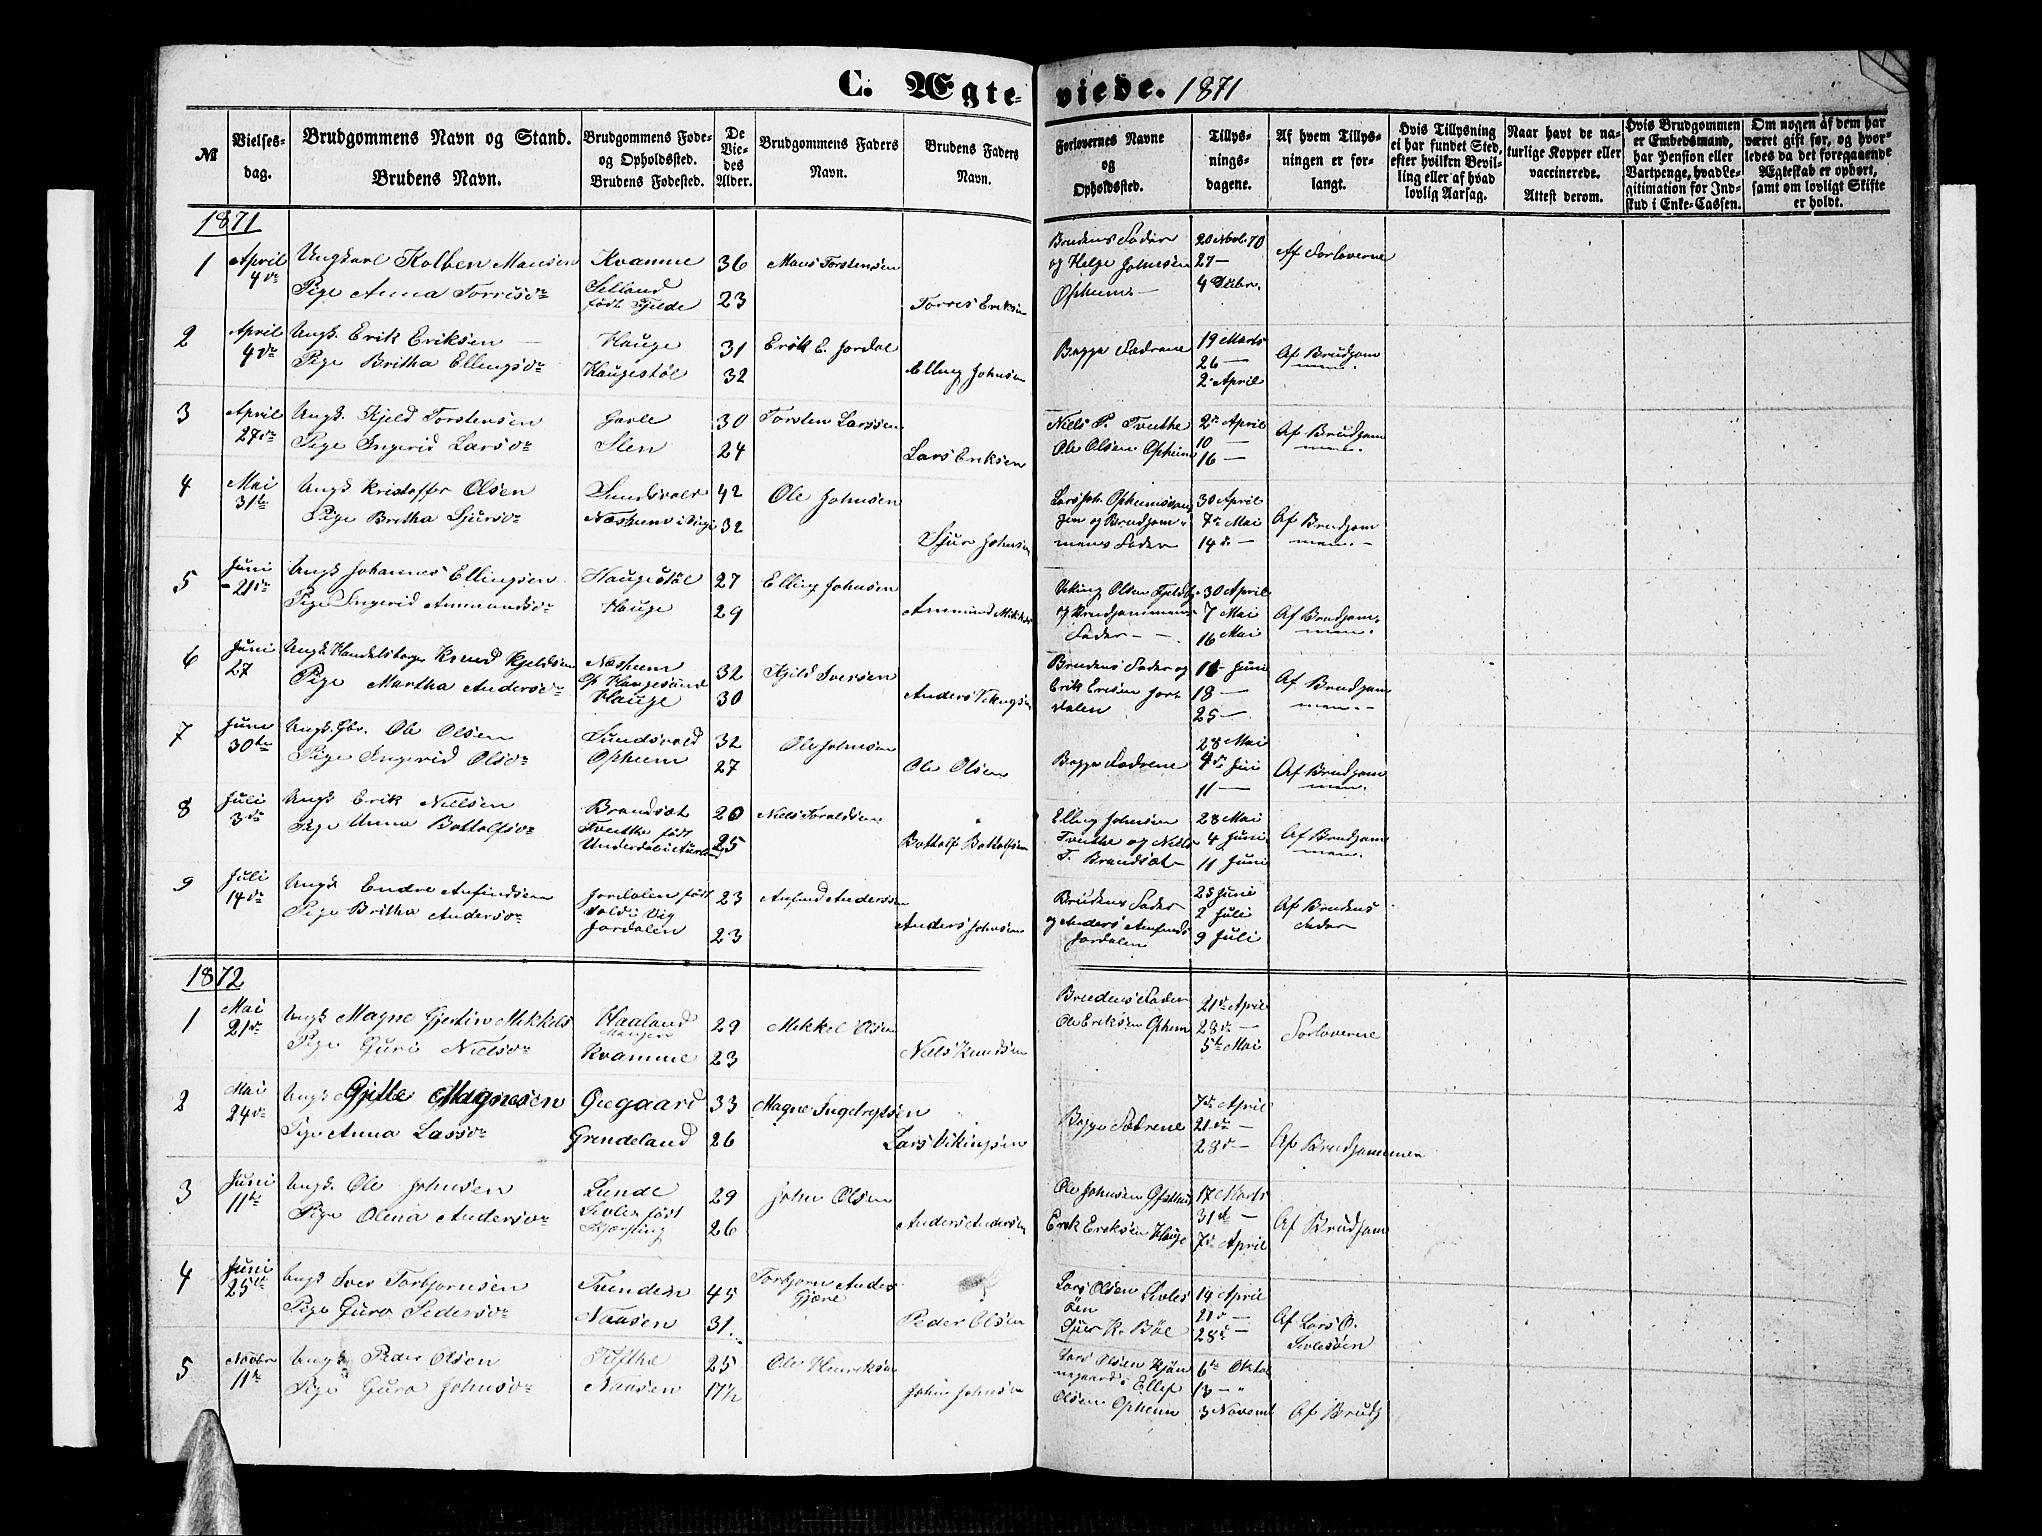 C. Ægte-
viede. 1871
№
Vielses-
dag.
Brudgommens Navn og Stand.
Brudens Navn.
Brudgommens Føde-
og Opholdssted.
Brudens Fødested.
De
Vie-
des
Alder.
Brudgommens Faders
Navn.
Brudens Faders
Navn.
Forlovernes Navne
og
Opholdssted.
Tillys-
nings-
dagene.
Af hvem Tillys-
ningen er for-
langt.
Hvis Tillysning
ei har fundet Sted,
efter hvilken Bevil-
ling eller af hvad
lovlig Aarsag.
Naar havt de na-
turlige Kopper eller
vaccinerede.
Attest derom.
Hvis Brudgommen
er Embedsmand,
har Pension eller
Vartpenge, hvad Le-
gitimation for Ind-
skud i Enke-Cassen.
Om nogen af dem har
været gift før, og hvor-
ledes da det foregaaende
Ægteskab er ophørt,
samt om lovligt Skifte
er holdt.
1871
1 April 4de Ungkarl Kolben Mansen Kvamme 36 Mons Torstensen
Pige Anna Torrisdr Selland født Fjelde 23 Torres Eriksen
Brudens Fader og Helge Johnsen Opheim
20 Novb. 70
27 —
4 Debr.
Af Forloverne
2 April 4de Ungk. Erik Eriksen Hauge 31 Erik E. Jordal
Pige Britha Ellingsdr Haugestøl 32 Elling Johnsen
Begge Fædrene
19 Marts
26 —
2 April
Af Brudgommen.
3 April 27de Ungk. Kjeld Torstensen Gavle 30 Torsten Larssen
Pige Ingerid Larsdr Sten 24 Lars Eriksen
Niels P. Tvuthe
Ole Olsen Opheim
2den April
10 —
16 —
Af Brudgommen.
4 Mai 31te Ungk Kristoffer Olsen Sundsvold 42 Ole Johnsen
Pige Britha Sjursdr Næsheim i Vigø 32 Sjur Johnsen
og Brudgommens Fader
30 April
7de Mai
14de —
Af Brudgommen.
5 Juni 21de Ungk Johannes Ellingsen Haugestøl 27 Elling Johnsen
Pige Ingerid Ammundsdr Hauge 29 Ammund Mikkels
Viking Olsen
og Brudgommens Fader
30 April
7 Mai
16 Mai
Af Brudgommen.
6 Juni 27 Ungk. Handelsborger Knud Kjeldsen Næsheim 32 Kjeld Iversen
Pige Martha Andersdr Haugesund Hauge 30 Anders Vikingsen
Brudens Fader og
Erik Ericsen Jordalen
11 Juni
18 —
25 —
Af Brudgommen.
7 Juni 30te Ungk. Gbr. Ole Olsen Sundsvold 32 Ole Johnsen
Pige Ingerid Olsdr Opheim 27 Ole Olsen
Begge Fædrene
28 Mai
4de Juni
11 —
Af Brudgommen.
8 Juli 3de Ungk Erik Nielsen Brandsæt 20 Niels Toraldsen
Pige Anna Bottolfsdr Tvuthe født Underdal i Aurland 25 Bottolf Bottolfsen
Elling Johnsen
Tvuthe og Niels
T. Brandsæt
28 Mai
4 Juni
11 Juni
Af Brudgommen.
9 Juli 14de Ungk Endre Anfindsen Jordalen født 23 Anfind Andersen
Pige Britha Andersdr Jordalen 23 Anders Johnsen
Brudens Fader
og Anders Anfinds
Jordalen
25 Juni
2 Juli
9 Juli
Af Brudens Fader
1872
1 Mai 21de Ungk Magne Gjertin Mikkels Haaland 29 Mikkel Olsen
Pige Guri Nielsdr Kvamme 23 Niels Knudsen
Brudens Fader
Ole Eriksen Opheim
21de April
28de —
5te Mai
Forloverne
2 Mai 24de Ungk Gjitle Magnesen Øvegaard 33 Magne Ingebrigtsen
Pige Anna Lassdr Grindeland 26 Lars Vikingsen
Begge Fædrene
7de April
21de —
28de —
Af Brudgommen
3 Juni 11te Ungk. Ole Johnsen Lunde 29 John Olsen
Pige Olena Andersdr 26 Anders Andersen
Ole Johnsen
Erik Eriksen Hauge
17 Marts
31te —
7de April
Af Brudgom
4 Juni 25te Ungk Iver Torbjornsen Tvinden 45 Torbjorn Anders Gjære
Pige Guro Pedersdr Naasen 31. Peder Olsen
Lars Olsen Sivles
øen
Sjur K. Bøe
14 April
21de —
28de —
Af Lars O.
Sivlesøen
5 Novbr 11te Ungk Peder Olsen Tufthe 25 Ole Henriksen
Pige Guro Johnsdr Naasen 17½ John Johnsen
Lars Olsen
Ellef
Olsen Opheim
6te Oktob
13 — "
3 Novemb
Af Brudg